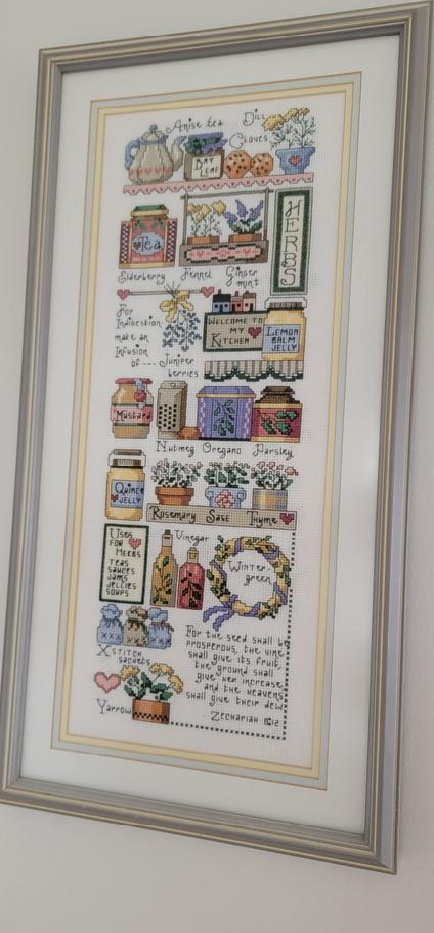 Anise tea
Dill
Cloves
BAY
LEAF
Tea
HERBS
Elderberry Fennel Ginger
mint
For
Indigestion
make an
Infusion
of --- Juniper
berries
WELCOME TO
MY
KITCHEN
LEMON
BALM
JELLY
Mustard
Nutmeg Oregano Parsley
QUINCE
JELLY
ROSEMARY SAGE THYME
USES
FOR
HERBS
TEAS
SAUCES
JAMS
JELLIES
SOUPS
Vinegar
Winter-
green
X STITCH
SACHETS
For the seed shall be
prosperous, the vine
shall give its fruit,
the ground shall
give her increase
and the heavens
shall give their dew
Zechariah 8:12
Yarrow